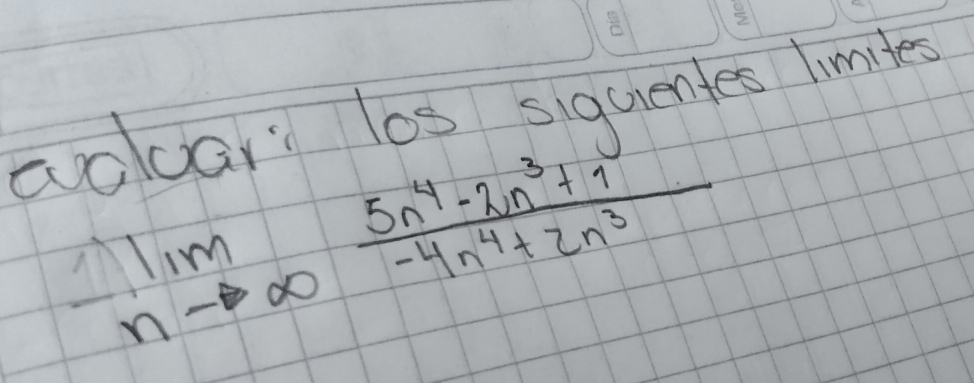 Día
evaluar: los siguientes limites
1) lim n→∞ (5n⁴-2n³+1)/(-4n⁴+2n³)